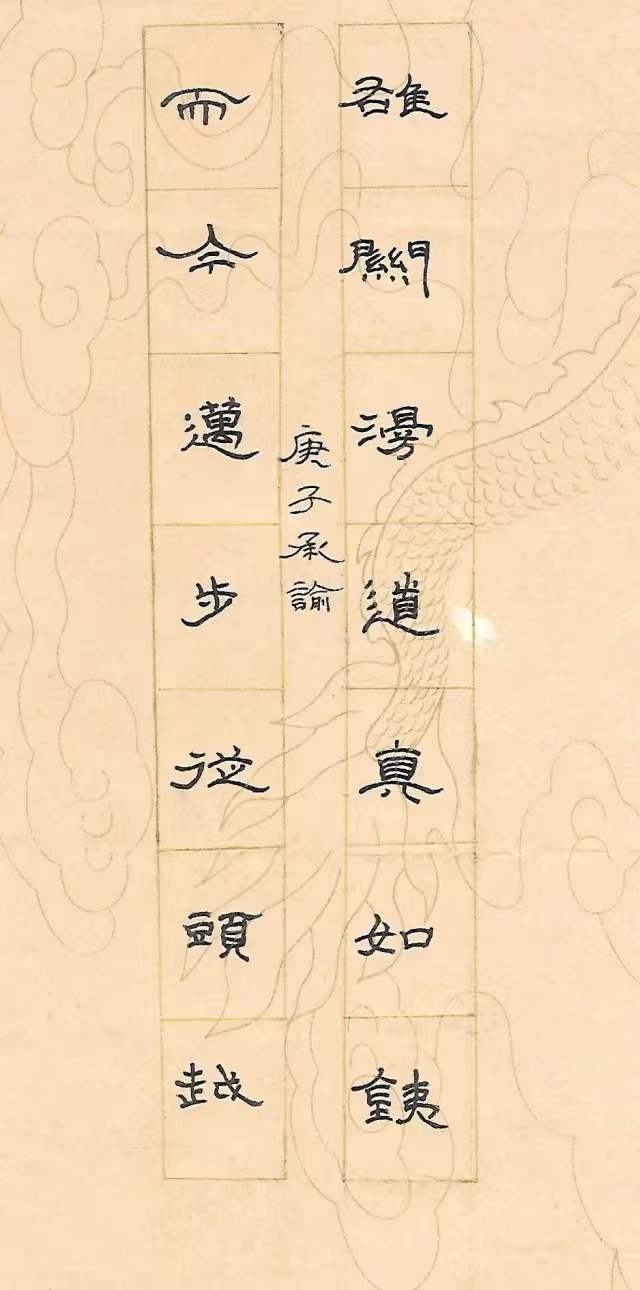 雄關漫道真如銕
而今邁步從頭越
庚子承諭